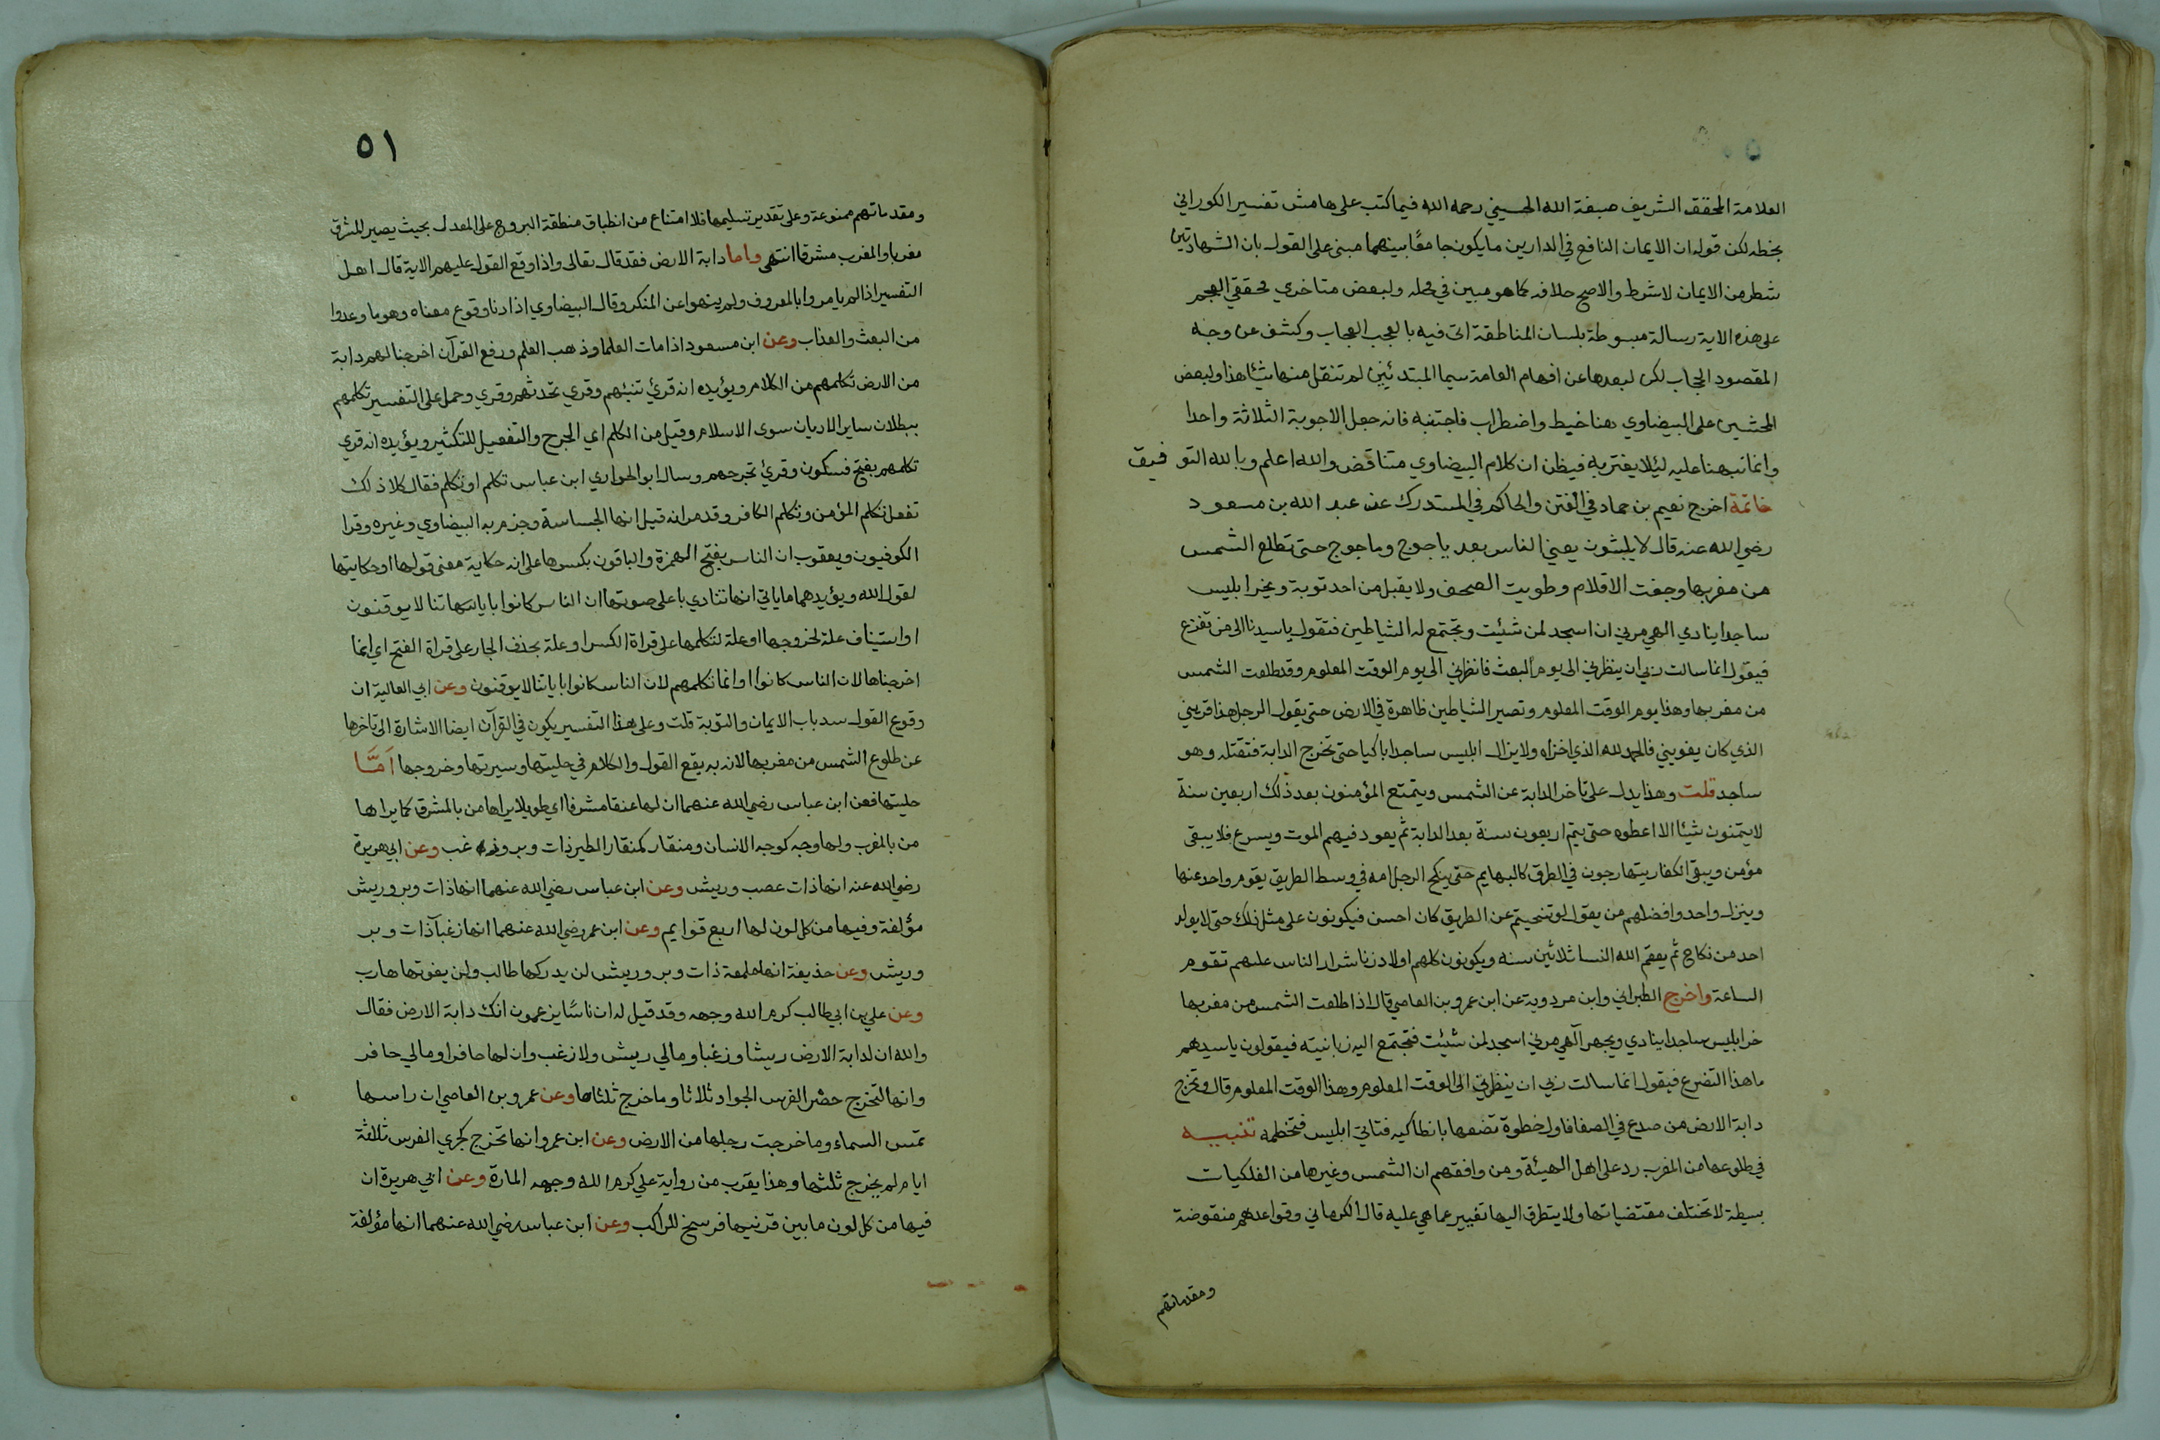 ٥٠
العلامة المحقق الشريف صبغة الله الحسيني رحمه الله فيما كتب على هامش تفسير الكوراني
بخطه لكن قوله ان الايمان النافع في الدارين ما يكون جامعًا بينهما مبنى على القول بان الشهادتين
شطر من الايمان لا شرط والاصح خلافه كما هو مبين في محله ولبعض متاخري محققي العجم
على هذه الاية رسالة مبسوطة بلسان المناطقة اتى فيه بالعجب العجاب وكشف عن وجه
المقصود الحجاب لكن لبعدها عن افهام العامة سيما المبتدئين لم تنقل منها شيئا هذا ولبعض
المحشين على البيضاوي هنا خيط واضطراب فاجتنبه فانه جعل الاجوبة الثلاثة واحدا
وانما نبهنا عليه ليئلا يغتر به فيظن ان كلام البيضاوي متناقض والله اعلم وبالله التوفيق
خاتمة اخرج نعيم بن حماد في الفتن والحاكم في المستدرك عن عبد الله بن مسعود
رضي الله عنه قال لا يلبثون يعني الناس بعد ياجوج وماجوج حتى تطلع الشمس
من مغربها وجفت الاقلام وطويت الصحف ولا يقبل من احد توبة ويخر ابليس
ساجدا ينادي الهي مرني ان اسجد لمن شئت وتجتمع له الشياطين فتقول يا سيدنا الى من تفزع
فيقول انما سالت ربي ان ينظرني الى يوم البعث فانظرني الى يوم الوقت المعلوم وقد طلعت الشمس
من مغربها وهذا يوم الوقت المعلوم وتصير الشياطين ظاهرة في الارض حتى يقول الرجل هذا قريني
الذي كان يغويني فالحمد لله الذي اخزاه ولا يزال ابليس ساجدا باكيا حتى تخرج الدابة فتقتله وهو
ساجد قلت وهذا يدل على تاخر الدابة عن الشمس ويتمتع المؤمنون بعد ذلك اربعين سنة
لا يتمنون شيئا الا اعطوه حتى يتم اربعون سنة بعد الدابة ثم يعود فيهم الموت ويسرع فلا يبقى
مؤمن ويبقى الكفار يتهارجون في الطرق كالبهايم حتى ينكح الرجل امه في وسط الطريق يقوم واحد عنها
وينزل واحد وافضلهم من يقول لو تنحيتم عن الطريق كان احسن فيكونون على مثل ذلك حتى لا يولد
احد من نكاح ثم يعقم الله النسا ثلاثين سنه ويكونون كلهم اولاد زنا شرار الناس عليهم تقوم
الساعة واخرج الطبراني وابن مردوية عن ابن عمرو بن العاصي قال اذا طلعت الشمس من مغربها
خر ابليس ساجدا ينادي ويجهر آلهي مرني اسجد لمن شئت فتجتمع اليه زبانيته فيقولون يا سيدهم
ما هذا التضرع فيقول انما سالت ربي ان ينظرني الى الوقت المعلوم وهذا الوقت المعلوم قال وتخرج
دابة الارض من صدع في الصفا فاول خطوة تضعها بانطاكيه فتاتي ابليس فتخطمه تنبيه
في طلوعها من المغرب رد على اهل الهيئة ومن وافقهم ان الشمس وغيرها من الفلكيات
بسيطة لا تختلف مقتضياتها ولا يتطرق اليها تغيير عما هي عليه قال الكرماني وقواعدهم منقوضة
ومقدماتهم
٥١
ومقدماتهم ممنوعة وعلى تقدير تسليمها فلا امتناع من انطباق منطقة البروج على المعدل بحيث يصير المشرق
مغربا والمغرب مشرقا انتهى واما دابة الارض فقد قال تعالى واذا وقع القول عليهم الاية قال اهل
التفسير اذا لم يامروا بالمعروف ولم ينهوا عن المنكر وقال البيضاوي اذا دنا وقوع معناه وهو ما وعدوا
من البعث والعذاب وعن ابن مسعود اذا مات العلما وذهب العلم ورفع القرآن اخرجنا لهم دابة
من الارض تكلمهم من الكلام ويؤيده انه قرئ تنبئهم وقري تحدثهم وقري وحمل على التفسير تكلمهم
ببطلان ساير الاديان سوى الاسلام وقيل من الكلم اي الجرح والتفعيل للتكثير ويؤيده انه قري
تكلمهم بفتح فسكون وقرئ تجرحهم وسال ابو الحواري ابن عباس تكلم او تكلم فقال كلا ذلك
تفعل تكلم المؤمن وتكلم الكافر وقد مر انه قيل انها الجساسة وجزم به البيضاوي وغيره وقرا
الكوفيون ويعقوب ان الناس بفتح الهمزة والباقون بكسرها على انه حكاية معنى قولها او حكايتها
لقول الله ويؤيدهما ما ياتي انها تنادي باعلى صوتها ان الناس كانوا باياتنا لا يوقنون
او استيناف علة لخروجها او علة لتكلمها على قراة الكسر او علة بحذف الجار على قراة الفتح اي انما
اخرجناها لان الناس كانوا او انما تكلمهم لان الناس كانوا باياتنا لا يوقنون وعن ابي العالية ان
وقوع القول سد باب الايمان والتوبة قلت وعلى هذا التفسير يكون في القرآن ايضا الاشارة الى تاخرها
عن طلوع الشمس من مغربها لانه به يقع القول والكلام في حليتها وسيرتها وخروجها اَمَّا
حليتها فعن ابن عباس رضي الله عنهما ان لها عنقا مشرفا اي طويلا يراها من بالمشرق كما يراها
من بالمغرب ولها وجه كوجه الانسان ومنقار كمنقار الطير ذات وبر وزغب وعن ابي هريرة
رضي الله عنه انها ذات عصب وريش وعن ابن عباس رضي الله عنهما انها ذات وبر وريش
مؤلفة وفيها من كل لون لها اربع قوايم وعن ابن عمر رضي الله عنهما انها زغبآ ذات وبر
وريش وعن حذيفة انها ملمعة ذات وبر وريش لن يدركها طالب ولن يفوتها هارب
وعن علي بن ابي طالب كرم الله وجهه وقد قيل له ان ناسًا يزعمون انك دابة الارض فقال
والله ان لدابة الارض ريشا وزغبا ومالي ريش ولا زغب وان لها حافرا ومالي حافر
وانها لتخرج حضر الفرس الجواد ثلاثا وما خرج ثلثاها وعن عمرو بن العاصي ان راسها
تمس السماء وما خرجت رجلها من الارض وعن ابن عمر وانها تخرج كجري الفرس ثلثة
ايام لم يخرج ثلثها وهذا يقرب من رواية علي كرم الله وجهه المارة وعن ابي هريرة ان
فيها من كل لون ما بين قرنيها فرسخ للراكب وعن ابن عباس رضي الله عنهما انها مؤلفة